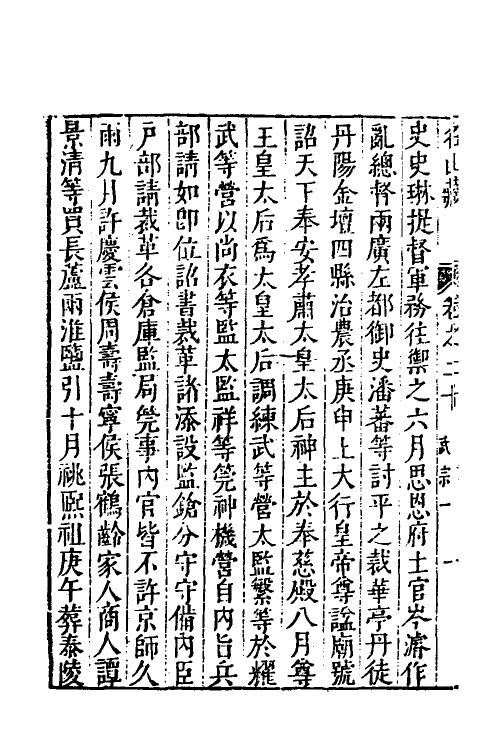 史史琳提督軍務往禦之六月思恩府土官岑濬作
亂總督兩廣左都御史潘蕃等討平之裁華亭丹徒
丹陽金壇四縣治農丞庚申上大行皇帝尊諡廟號
詔天下奉安孝肅太皇太后神主於奉慈殿八月尊
王皇太后為太皇太后調練武等營太監繫等於耀
武等營以尚衣等監太監祥等筦神機營自內旨兵
部請如卽位詔書裁革諸添設監鎗分守守備內臣
戶部請裁革各倉庫監局筦事內官皆不許京師久
雨九月許慶雲侯周壽壽寧侯張鶴齡家人商人譚
景清等買長蘆兩淮鹽引十月祧熙祖庚午葬泰陵